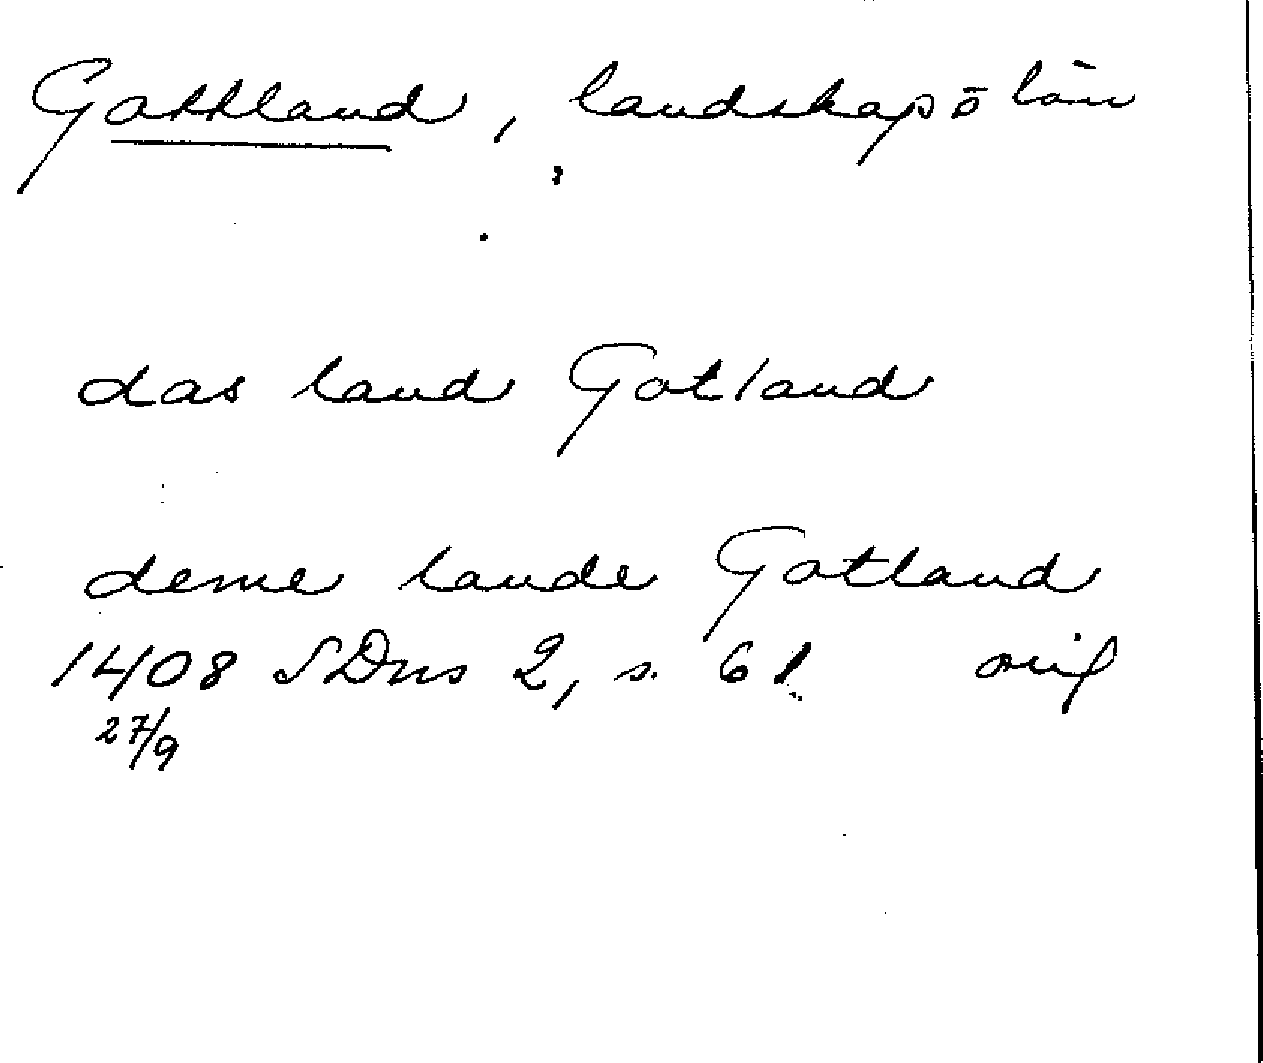 Gottland, landskap ō län
das land Gotland
deme lande Gotland
1408 SDns 2, s. 61 orig
27/9